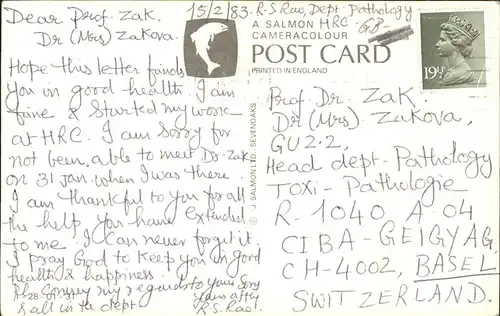 Dear Prof. Zak.
Dr (Mrs) Zakova.
Hope this letter finds
you in good health. I am
fine & started my work
at HRC. I am sorry for
not been able to meet Dr. Zak
on 31 Jan when I was there.
I am thankful to you for all
the help you have extended
to me. I can never forget it.
I pray God to keep you in good
health & happiness.
Pl. convey my regards to your son
& all in the dept.
28-01-31
Yours affly
R.S. Rao.
15/2/83. R.S Rao, Dept. Pathology
HRC.
GB
A SALMON
CAMERACOLOUR
POST CARD
PRINTED IN ENGLAND
© J SALMON LTD SEVENOAKS
19½P
Prof. Dr. Zak.
Dr (Mrs) Zakova,
GU 2.2,
Head dept-Pathology
Toxi-Pathologie
R. 1040 A 04
CIBA-GEIGY AG,
CH-4002, BASEL
SWITZERLAND.